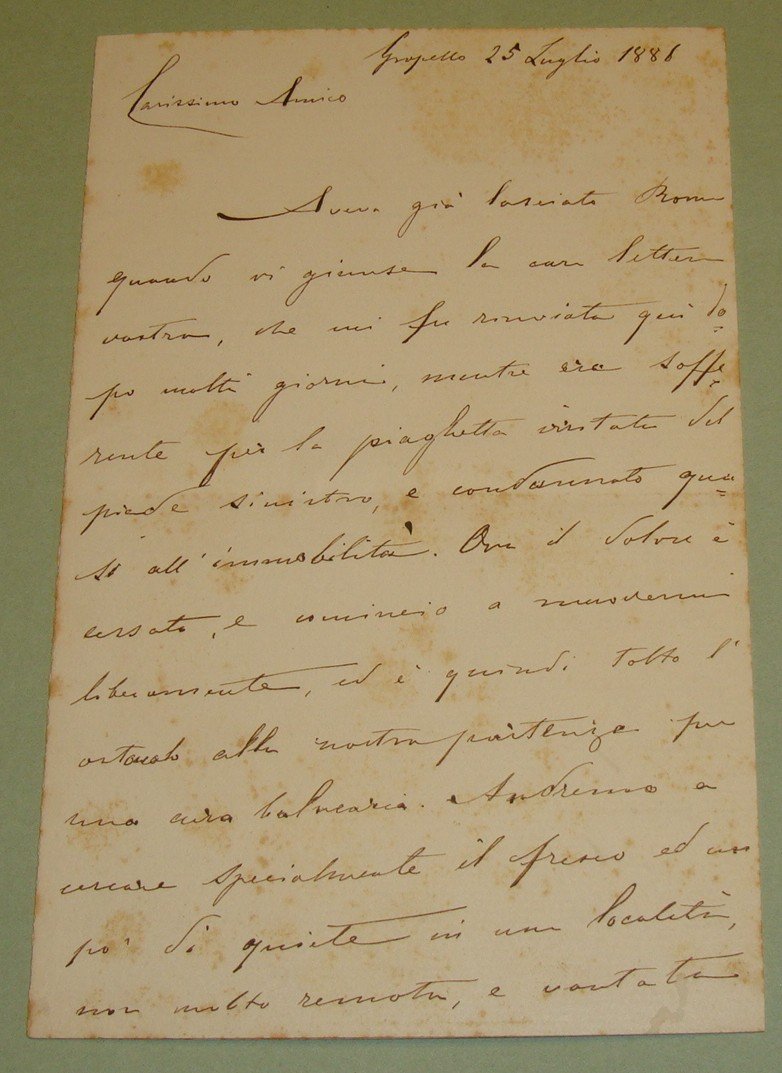 Gropello 25 Luglio 1886
Carissimo Amico
Aveva già lasciato Roma
quando vi giunse la cara lettera
vostra, che mi fu rinviata qui do=
po molti giorni, mentre era soffe=
rente per la piaghetta irritata del
piede sinistro, e condannato qua=
si all'immobilità. Ora il dolore è
cessato, e comincio a muovermi
liberamente, ed è quindi tolto l'
ostacolo alla nostra partenza per
una cura balnearia. Andremo a
cercare specialmente il fresco ed un
po' di quiete in una località,
non molto remota, e vantata